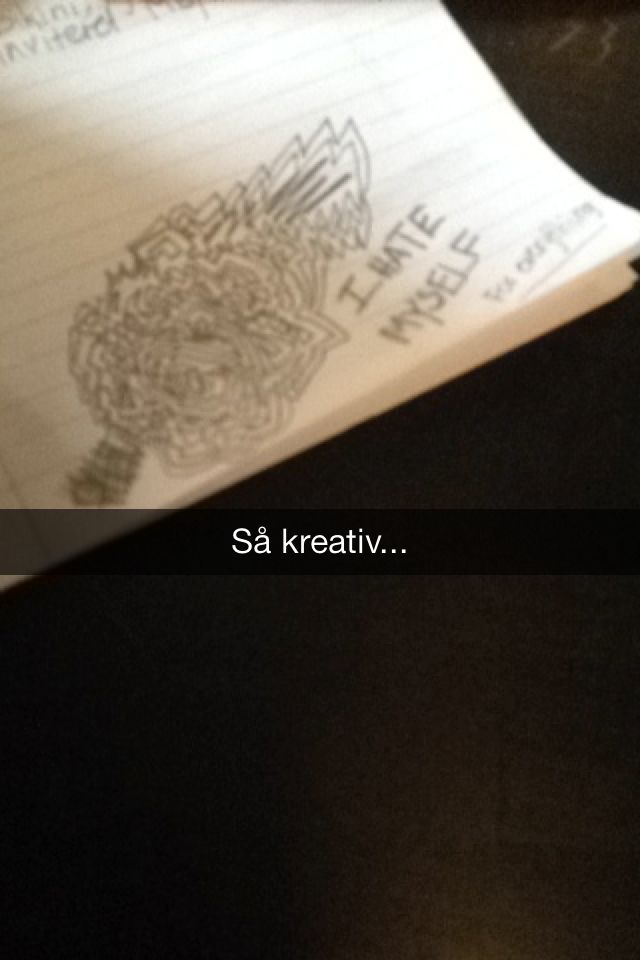 invitered
I HATE
MYSELF
For everything
Så kreativ...